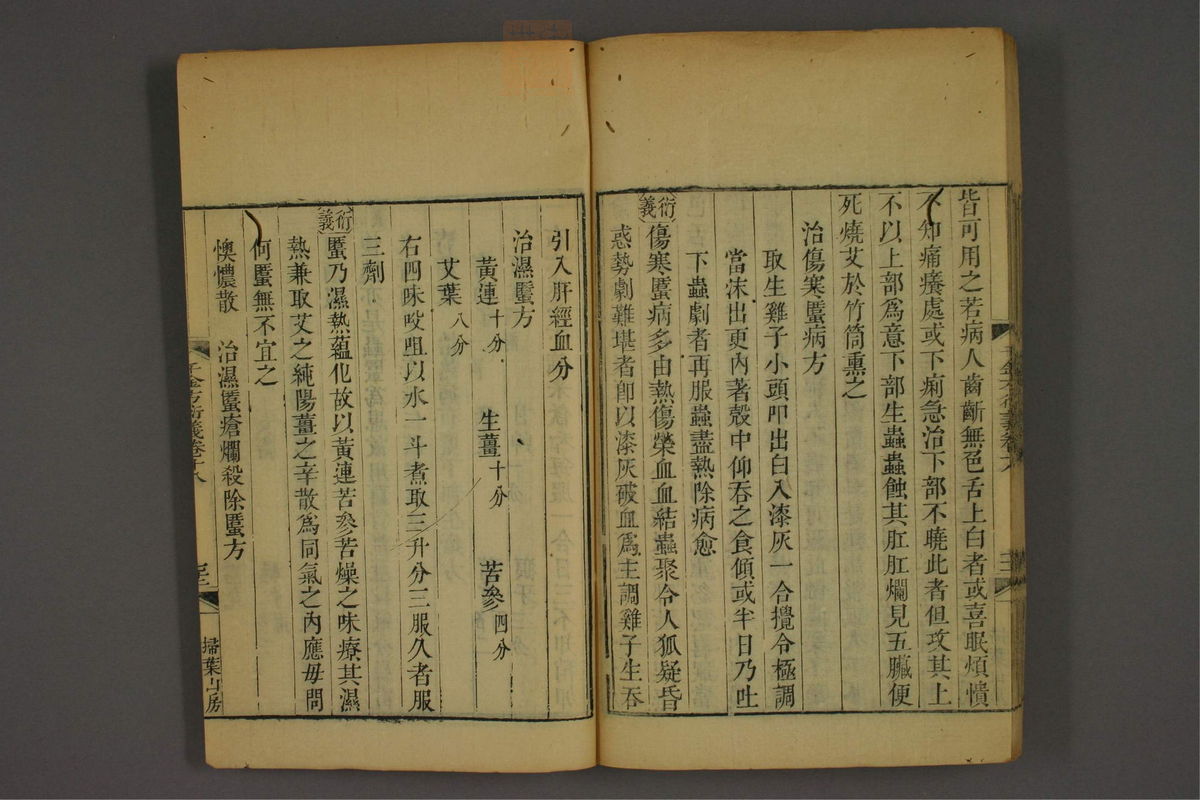 皆可用之若病人齒齗無色舌上白者或喜眠煩憒
不知痛癢處或下痢急治下部不曉此者但攻其上
不以上部爲意下部生蟲蟲蝕其肛肛爛見五臟便
死燒艾於竹筒熏之
治傷寒䘌病方
取生雞子小頭叩出白入漆灰一合攪令極調
當沫出更內著殼中仰吞之食傾或半日乃吐
下蟲劇者再服蟲盡熱除病愈
衍義
傷寒䘌病多由熱傷榮血血結蟲聚令人狐疑昏
惑勢劇難堪者卽以漆灰破血爲主調雞子生吞
引入肝經血分
治濕䘌方
黃連十分 生薑十分 苦參四分
艾葉八分
右四味㕮咀以水一斗煮取三升分三服久者服
三劑
衍義
䘌乃濕熱蘊化故以黃連苦參苦燥之味療其濕
熱兼取艾之純陽薑之辛散爲同氣之內應毋問
何䘌無不宜之
懊憹散 治濕䘌瘡爛殺除䘌方
千金方衍義卷十八
掃葉山房